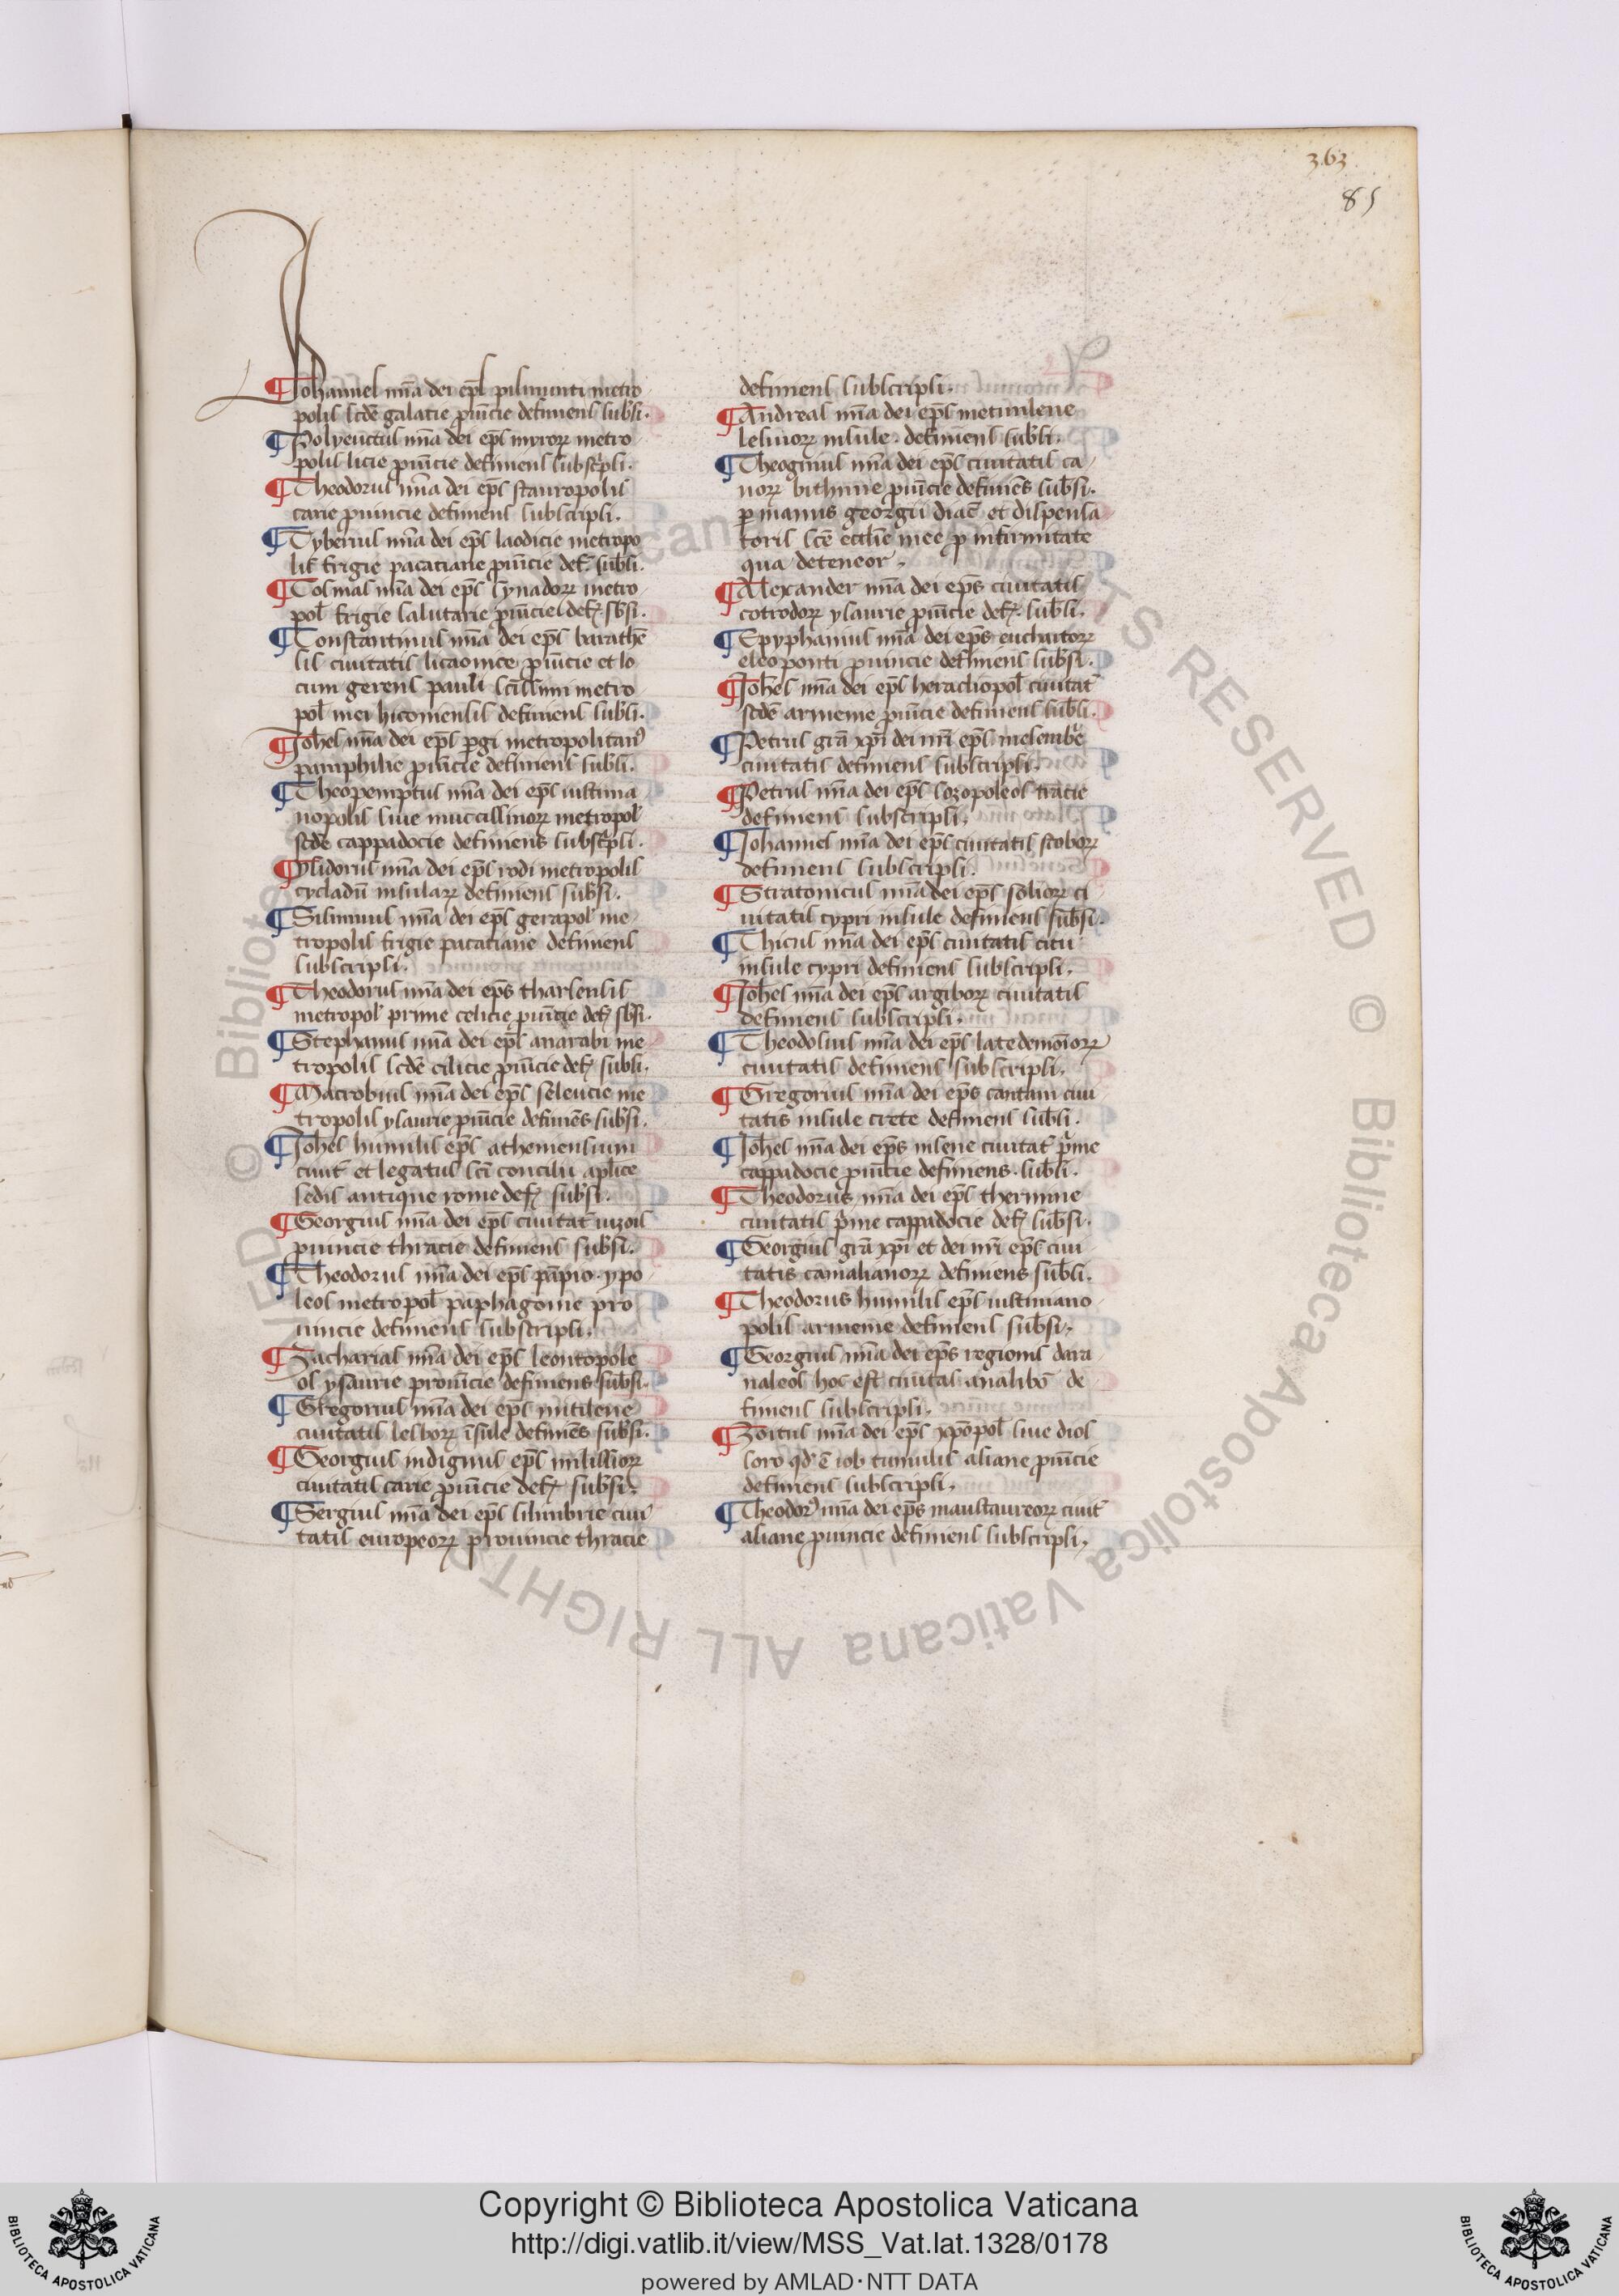 363
85
¶ Johannes mīa dei ep̄s pisinunti metro
polis scd̄e galatie ꝓuīcie definiens subsi.
¶ Polyeuctus mīa dei ep̄s myroꝝ metro
polis licie ꝓuīcie definiens subsc̄psi.
¶ Theodorus mīa dei ep̄s stauropolis
carie ꝓuincie definiens subscripsi.
¶ Tyberius mīa dei ep̄s laodicie metropo
lis frigie pacatiane ꝓuīcie def. subsi.
¶ Cosmas mīa dei ep̄s synadoꝝ metro
pol̄ frigie salutarie ꝓuīcies def. sbsi.
¶ Constantinus mīa dei ep̄s barathē
sis ciuitatis licaonice ꝓuīcie et lo
cum gerens pauli sc̄issimi metro
pol̄ mei hiconiensis definiens subsi.
¶ Joh̄es mīa dei ep̄s ꝑgi metropolitanꝰ
pamphilie ꝓuīcie definiens subsi.
¶ Theopemptus mīa dei ep̄s iustinia
nopolis siue muccissinoꝝ metropol̄
scd̄e cappadocie definiens subsc̄psi.
¶ ysidorus mīa dei ep̄s rodi metropolis
cycladū insularꝝ definiens subsi.
¶ Sisinnius mīa dei ep̄s gerapol̄ me
tropolis frigie pacatiane definiens
subscripsi.
¶ Theodorus mīa dei ep̄s tharsensis
metropol̄ prime celicie ꝓuīcie def. sbsi.
¶ Stephanus mīa dei ep̄s anarabi me
tropolis scd̄e cilicie ꝓuīcie def. subsi.
¶ Macrobius mīa dei ep̄s seleucie me
tropolis ysaurie ꝓuīcie definiēs subsi.
¶ Joh̄es humilis ep̄s atheniensium
ciuit̄ et legatus sc̄i concilii apl̄ice
sedis antique rome def. subsi.
¶ Georgius mīa dei ep̄s ciuitat̄ uizois
ꝓuincie thracie definiens subsi.
¶ Theodorus mīa dei ep̄s pāpio. ypo
leos metropol̄ paphagonie pro
uincie definiens subscripsi.
¶ Zacharias mīa dei ep̄s leontopole
os ysaurie prouīcie definiens subsi.
¶ Gregorius mīa dei ep̄s mitilene
ciuitatis lesboꝝ īsule definiēs subsi.
¶ Georgius indignus ep̄s milissioꝝ
ciuitatis carie ꝓuīcie def. subsi.
¶ Sergius mīa dei ep̄s silimbrie ciui
tatis europeoꝝ prouincie thracie
definiens subscripsi.
¶ Andreas mīa dei ep̄s metimlene
lesinoꝝ insule. definiens subsi.
¶ Theoginius mīa dei ep̄s ciuitatis ca
noꝝ bithinie ꝓuīcie definiēs subsi.
ꝑ manus georgii diac̄ et dispensa
toris sc̄e eccl̄ie mee ꝓ infirmitate
qua detineor.
¶ Alexander mīa dei ep̄s ciuitatis
cotrodoꝝ ysaurie ꝓuīcie def. subsi.
¶ Epyphanius mīa dei ep̄s euchaitoꝝ
eleoponti prouincie definiens subsi.
¶ Joh̄es mīa dei ep̄s heracliopol̄ ciuitat̄
scd̄e armenie ꝓuīcie definiens subsi.
¶ Petrus gr̄a xp̄i dei nr̄i ep̄s mesembrie
ciuitatis definiens subscripsi.
¶ Petrus mīa dei ep̄s sozopoleos tracie
definiens subscripsi.
¶ Johannes mīa dei ep̄s ciuitatis stoboꝝ
definiens subscripsi.
¶ Stratonicus mīa dei ep̄s solioꝝ ci
uitatis cypri insule definiens subsi.
¶ Thicus mīa dei ep̄s ciuitatis citii
insule cypri definiens subscripsi.
¶ Joh̄es mīa dei ep̄s argiboꝝ ciuitatis
definiens subscripsi.
¶ Theodosius mīa dei ep̄s latedemōioꝝ
ciuitatis definiens subscripsi.
¶ Gregorius mīa dei ep̄s cantani ciui
tatis insule crete definiens subsi.
¶ Joh̄es mīa dei ep̄s insene ciuitat̄ p̄me
cappadocie ꝓuīcie definiens. subsi.
¶ Theodorus mīa dei ep̄s thermine
ciuitatis p̄me cappadocie def. subsi.
¶ Georgius gr̄a xp̄i et dei nr̄i ep̄s ciui
tatis camasianoꝝ definiens subsi.
¶ Theodorus humilis ep̄s iustiniano
polis armenie definiens subsi.
¶ Georgius mīa dei ep̄s regionis dara
naleos hoc est ciuitas analibō de
finiens subscripsi.
¶ Zoitus mīa dei ep̄s xp̄opol̄ siue dios
soro qd̄ ē iob tumulis asiane ꝓuīcie
definiens subscripsi.
¶ Theodorꝰ mīa dei ep̄s maustaureoꝝ ciuit̄
asiane ꝓuincie definiens subscripsi.
© Biblioteca Apostolica Vaticana ALL RIGHTS RESERVED
Copyright © Biblioteca Apostolica Vaticana
http://digi.vatlib.it/view/MSS_Vat.lat.1328/0178
powered by AMLAD・NTT DATA
BIBLIOTECA APOSTOLICA VATICANA
BIBLIOTECA APOSTOLICA VATICANA